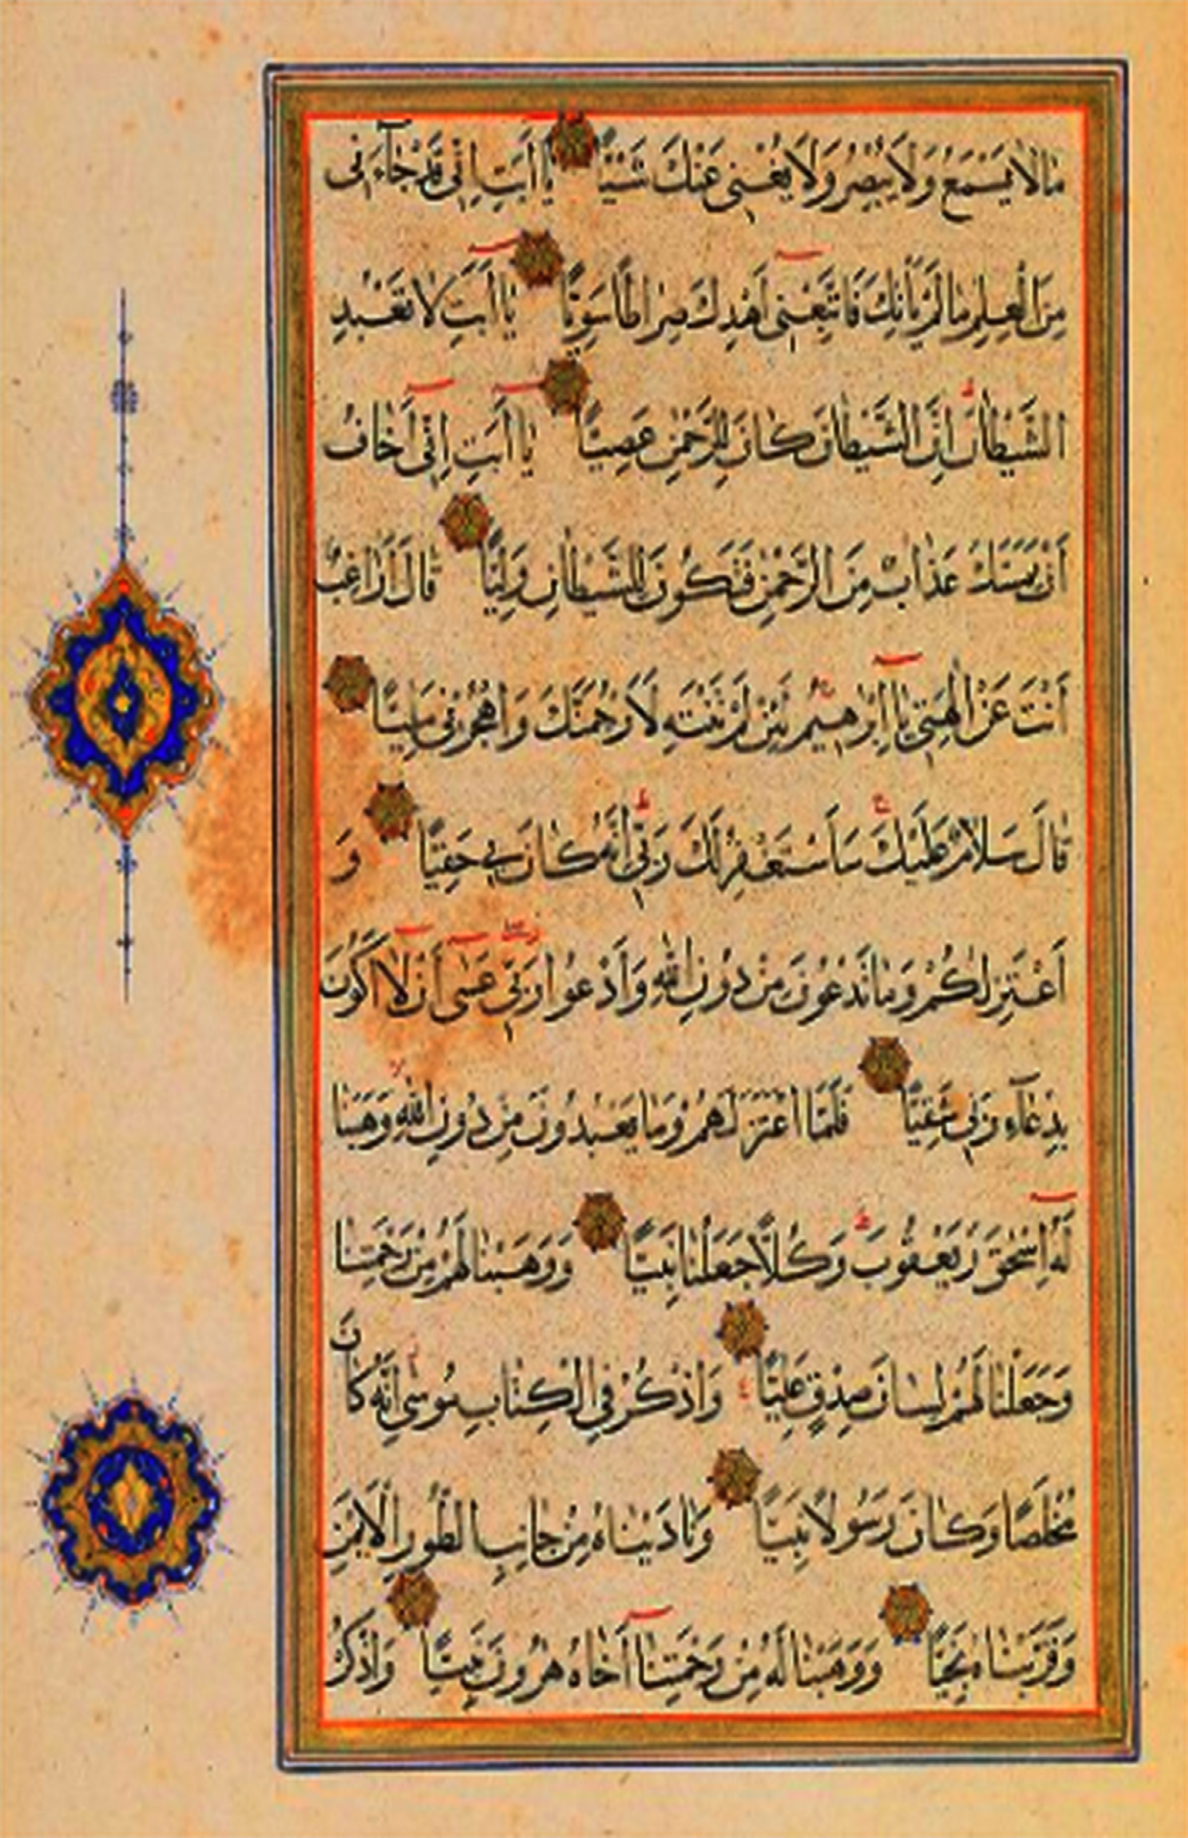 مَا لَا يَسْمَعُ وَلَا يُبْصِرُ وَلَا يُغْنِي عَنْكَ شَيْئًا يَا أَبَتِ إِنِّي قَدْ جَاءَنِي
مِنَ الْعِلْمِ مَا لَمْ يَأْتِكَ فَاتَّبِعْنِي أَهْدِكَ صِرَاطًا سَوِيًّا يَا أَبَتِ لَا تَعْبُدِ
الشَّيْطَانَ إِنَّ الشَّيْطَانَ كَانَ لِلرَّحْمٰنِ عَصِيًّا يَا أَبَتِ إِنِّي أَخَافُ
أَنْ يَمَسَّكَ عَذَابٌ مِنَ الرَّحْمٰنِ فَتَكُونَ لِلشَّيْطَانِ وَلِيًّا قَالَ أَرَاغِبٌ
أَنْتَ عَنْ اٰلِهَتِي يَا إِبْرٰهِيمُ لَئِنْ لَمْ تَنْتَهِ لَأَرْجُمَنَّكَ وَاهْجُرْنِي مَلِيًّا
قَالَ سَلَامٌ عَلَيْكَ سَأَسْتَغْفِرُ لَكَ رَبِّي إِنَّهُ كَانَ بِي حَفِيًّا وَ
أَعْتَزِلُكُمْ وَمَا تَدْعُونَ مِنْ دُونِ اللّٰهِ وَأَدْعُوا رَبِّي عَسٰى أَنْ لَا أَكُونَ
بِدُعَاءِ رَبِّي شَقِيًّا فَلَمَّا اعْتَزَلَهُمْ وَمَا يَعْبُدُونَ مِنْ دُونِ اللّٰهِ وَهَبْنَا
لَهُ إِسْحٰقَ وَيَعْقُوبَ وَكُلًّا جَعَلْنَا نَبِيًّا وَوَهَبْنَا لَهُمْ مِنْ رَحْمَتِنَا
وَجَعَلْنَا لَهُمْ لِسَانَ صِدْقٍ عَلِيًّا وَاذْكُرْ فِي الْكِتَابِ مُوسٰى إِنَّهُ كَانَ
مُخْلَصًا وَكَانَ رَسُولًا نَبِيًّا وَنَادَيْنَاهُ مِنْ جَانِبِ الطُّورِ الْأَيْمَنِ
وَقَرَّبْنَاهُ نَجِيًّا وَوَهَبْنَا لَهُ مِنْ رَحْمَتِنَا أَخَاهُ هٰرُونَ نَبِيًّا وَاذْكُرْ